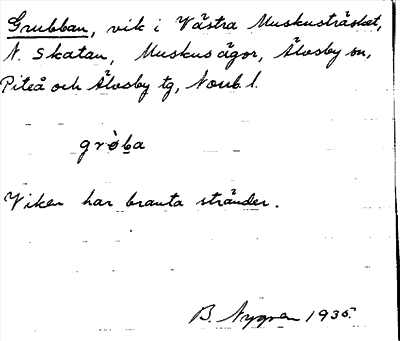 Grubban, vik i Västra Muskusträsket,
N. Skatan, Muskus ägor, Älvsby sn,
Piteå och Älvsby tg, Norrb. l.
gròba
Viken har branta stränder.
B. Nygren 1935.